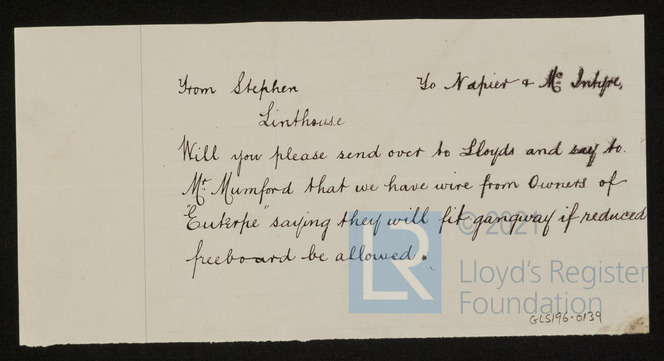 From Stephen To Napier & Mc. Intyre,
Linthouse
Will you please send over to Lloyds and say to
Mr. Mumford that we have wire from Owners of
"Euterpe" saying they will fit gangway if reduced
freeboard be allowed.
© 2021
LR Lloyd's Register
Foundation
GLS196-0139